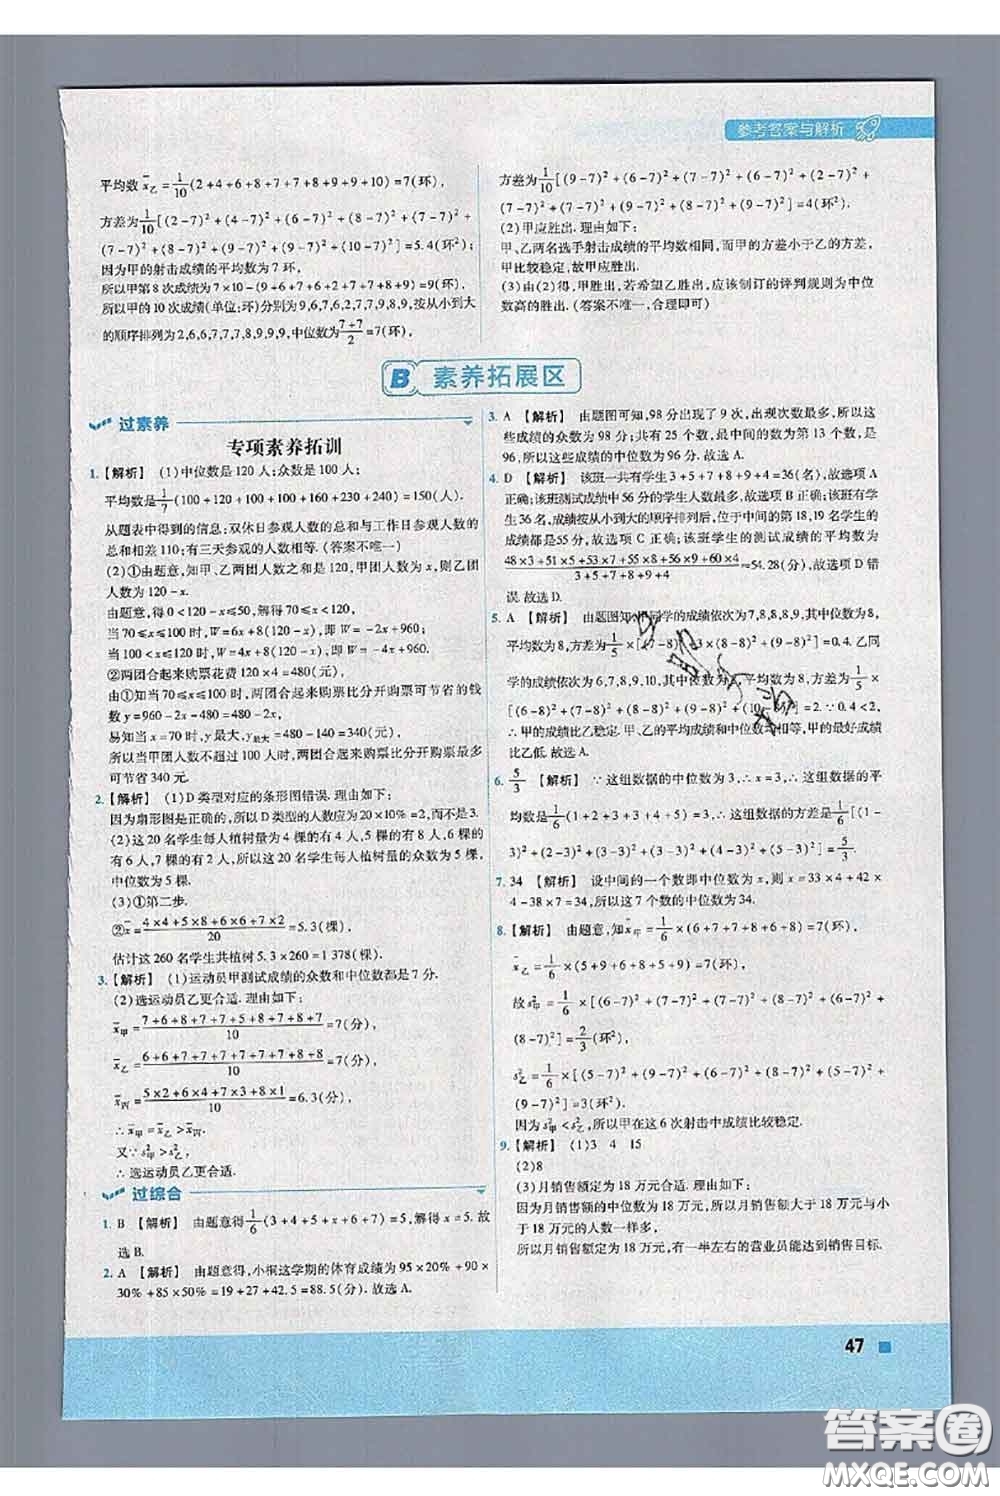 参考答案与解析
平均数x̄乙=1/10(2+4+6+8+7+7+8+9+9+10)=7(环),
方差为1/10[(2-7)²+(4-7)²+(6-7)²+(8-7)²+(7-7)²+
(7-7)²+(8-7)²+(9-7)²+(9-7)²+(10-7)²]=5.4(环²).
因为甲的射击成绩的平均数为7环,
所以甲第8次成绩为7×10-(9+6+7+6+2+7+7+8+9)=9(环).
所以甲的10次成绩(单位:环)分别为9,6,7,6,2,7,7,9,8,9,按从小到大
的顺序排列为2,6,6,7,7,7,8,9,9,9,中位数为(7+7)/2=7(环),
方差为1/10[(9-7)²+(6-7)²+(7-7)²+(6-7)²+(2-7)²+
(7-7)²+(7-7)²+(9-7)²+(8-7)²+(9-7)²]=4(环²).
(2)甲应胜出.理由如下:
甲、乙两名选手射击成绩的平均数相同,而甲的方差小于乙的方差,
甲比较稳定,故甲应胜出.
(3)由(2)得,甲胜出,若希望乙胜出,应该制订的评判规则为中位
数高的胜出.(答案不唯一,合理即可)
B 素养拓展区
过素养
专项素养拓训
1.【解析】 (1)中位数是120人;众数是100人;
平均数是1/7(100+120+100+100+160+230+240)=150(人).
从题表中得到的信息:双休日参观人数的总和与工作日参观人数的
总和相差110;有三天参观的人数相等.(答案不唯一)
(2)①由题意,知甲、乙两团人数之和是120,甲团人数为x,则乙团
人数为120-x.
由题意,得0<120-x≤50,解得x≥70.
当70≤x≤100时,W=6x+8(120-x),即W=-2x+960;
当100<x<120时,W=4x+8(120-x),即W=-4x+960.
②两团合起来购票花费120×4=480(元),
由①知当70≤x≤100时,两团合起来购票比分开购票可节省的钱
数y=960-2x-480=480-2x(元),
易知当x=70时,y最大=480-140=340(元),
所以当甲团人数不超过100时,两团合起来购票比分开购票最多
可节省340元.
2.【解析】 (1)D类型对应的条形图错误.理由如下:
因为扇形图是正确的,所以D类型的人数应为20×10%=2,而不是3.
(2)这20名学生每人植树量为4棵的有4人,5棵的有8人,6棵
的有6人,7棵的有2人,所以这20名学生每人植树量的众数为5棵,
中位数为5棵.
(3)①第二步.
②x̄=(4×4+5×8+6×6+7×2)/20=5.3(棵),
估计这260名学生共植树5.3×260=1 378(棵).
3.【解析】 (1)运动员甲测试成绩的众数和中位数都是7分.
(2)选运动员乙更合适.理由如下:
x̄甲=(7+6+8+7+7+5+8+7+8+7)/10=7(分),
x̄乙=(6+6+7+7+7+7+7+7+8+8)/10=7(分),
x̄丙=(5×2+6×4+7×3+8×1)/10=6.3(分),
∴x̄甲=x̄乙>x̄丙.
又∵s²甲>s²乙,
∴选运动员乙更合适.
过综合
1. B 【解析】 由题意得1/6(3+4+5+x+6+7)=5,解得x=5.故
选B.
2. A 【解析】 由题意得,小桐这学期的体育成绩为95×20%+90×
30%+85×50%=19+27+42.5=88.5(分).故选A.
3. A 【解析】 由题图可知,98分出现了9次,出现次数最多,所以这
些成绩的众数为98分;共有25个数,最中间的数为第13个数,是
96,所以这些成绩的中位数为96分.故选A.
4. D 【解析】 该班一共有学生3+5+7+8+9+4=36(名),故选项A
正确;该班测试成绩中56分的学生人数最多,故选项B正确;该班有
学生36名,成绩按从小到大的顺序排列后,位于中间的第18,19名学生的
成绩都是55分,故选项C正确;该班学生的测试成绩的平均数为
(48×3+51×5+53×7+55×8+56×9+60×4)/(3+5+7+8+9+4)≈54.28(分),故选项D错
误.故选D.
5. A 【解析】 由题图知甲同学的成绩依次为7,8,8,8,9,其中位数为8,
平均数为8,方差为1/5×[(7-8)²+3×(8-8)²+(9-8)²]=0.4.乙同
学的成绩依次为6,7,8,9,10,其中位数为8,平均数为8,方差为1/5
×[(6-8)²+(7-8)²+(8-8)²+(9-8)²+(10-8)²]=2.∵0.4<2,
∴甲的成绩比乙稳定.甲、乙的平均成绩和中位数均相等,甲的最好成绩
比乙低.故选A.
6. 5/3 【解析】 ∵这组数据的中位数是3,∴x=3,∴这组数据的平
均数是1/6(1+2+3+3+4+5)=3,∴这组数据的方差是1/6[(1-
3)²+(2-3)²+(3-3)²+(3-3)²+(4-3)²+(5-3)²]=5/3.
7. 34 【解析】 设中间的一个数即中位数为x,则x=33×4+42
×4-38×7=34,所以这7个数的中位数为34.
8.【解析】 由题意,知x̄甲=1/6×(6+7+7+8+6+8)=7(环),
x̄乙=1/6×(5+9+6+8+5+9)=7(环),
故s²甲=1/6×[(6-7)²+(7-7)²+(7-7)²+(8-7)²+(6-7)²+
(8-7)²]=2/3(环²),
s²乙=1/6×[(5-7)²+(9-7)²+(6-7)²+(8-7)²+(5-7)²+
(9-7)²]=3(环²).
因为s²甲<s²乙,所以甲在这6次射击中成绩比较稳定.
9.【解析】 (1)3 4 15
(2)8
(3)月销售额定为18万元合适.理由如下:
因为月销售额的中位数为18万元,所以月销售额大于18万元与小
于18万元的人数一样多,
所以月销售额定为18万元,有一半左右的营业员能达到销售目标.
47
答案圈
MXQE.COM